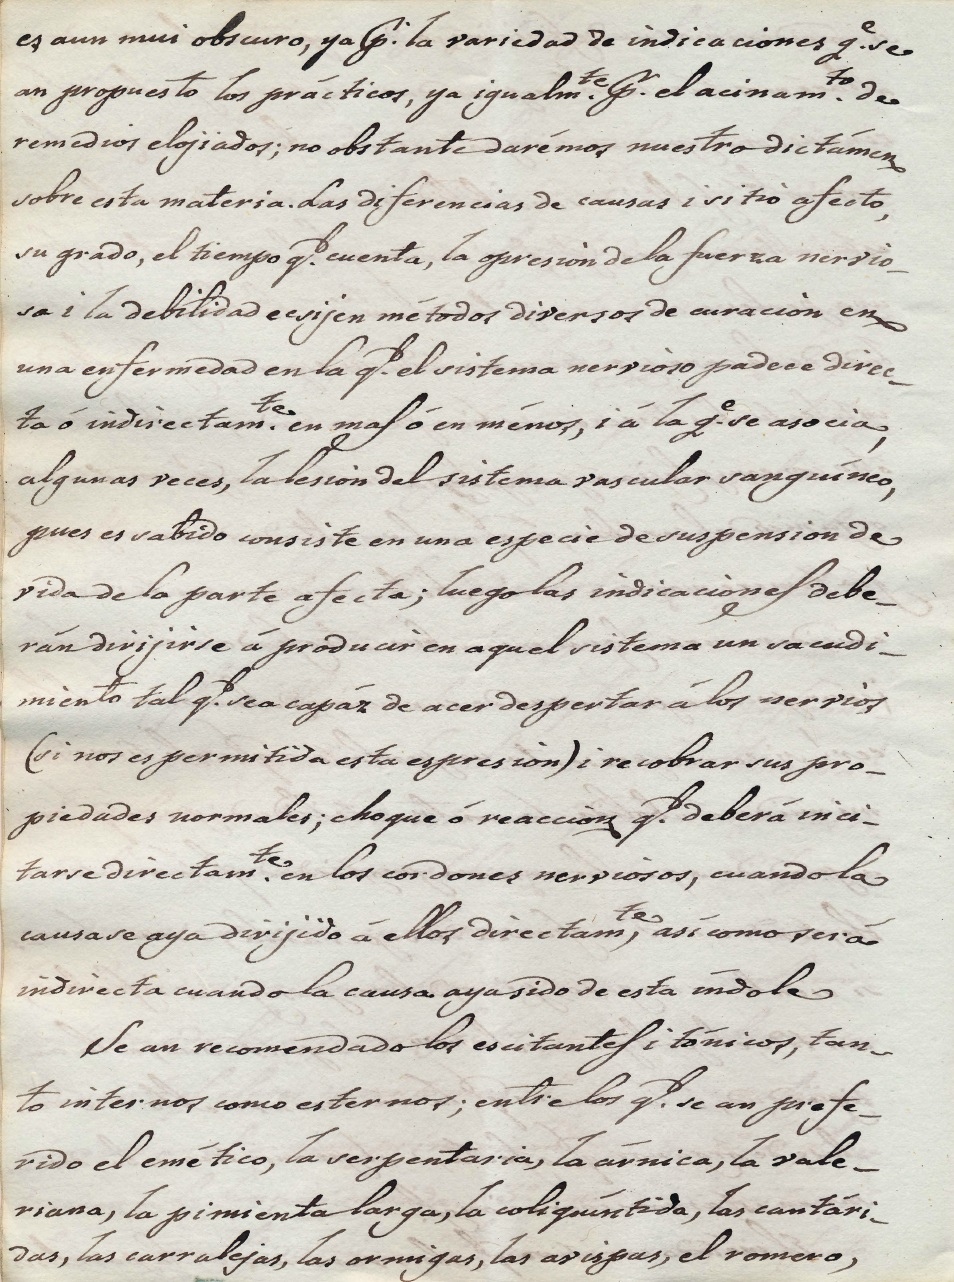 es aun mui obscuro, ya p.r la variedad de indicaciones q.e se
an propuesto los prácticos, ya igualm.te p.r el acinam.to de
remedios elojiados; no obstante darémos nuestro dictámen
sobre esta materia. Las diferencias de causas i sitio afecto,
su grado, el tiempo q.e cuenta, la opresion de la fuerza nervio-
sa i la debilidad ecsijen métodos diversos de curacion en
una enfermedad en la q.e el sistema nervioso padece direc-
ta ó indirectam.te en mas ó en ménos, i á la q.e se asocia,
algunas veces, la lesion del sistema vascular sanguíneo,
pues es sabido consiste en una especie de suspension de
vida de la parte afecta; luego las indicaciones debe-
rán dirijirse á producir en aquel sistema un sacudi-
miento tal q.e sea capáz de acer despertar á los nervios
(si nos es permitida esta espresion) i recobrar sus pro-
piedades normales; choque ó reaccion q.e deberá inci-
tarse directam.te en los cordones nerviosos, cuando la
causa se aya dirijido á ellos directam.te, así como será
indirecta cuando la causa aya sido de esta índole
Se an recomendado los escitantes i tónicos, tan-
to internos como esternos; entre los q.e se an prefe-
rido el emético, la serpentaria, la árnica, la vale-
riana, la pimienta larga, la coliquíntida, las cantári-
das, las carralejas, las ormigas, las avispas, el romero,